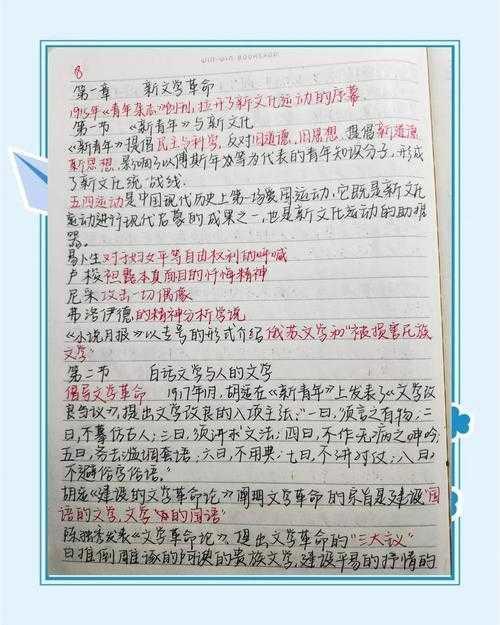 WIN-WIN BOOKSHOP
8
第一章 新文学革命
1915年《青年杂志》创刊，拉开了新文化运动的序幕
第一节 《新青年》与新文化
《新青年》提倡民主与科学，反对旧道德，旧思想，提倡新道德
新思想，影响了以傅斯年为等为代表的青年知识分子，形成
了新文化统一战线.
五四运动是中国现代历史上第一场爱国运动，它既是新文化
运动进行现代启蒙的成果之一，也是新文化运动的助推
器。
易卜生对于妇女平等自由权利的呼喊
卢梭袒露本真面目的忏悔精神
尼采攻击一切偶像
弗洛伊德的精神分析学说
《小说月报》以专号的形式介绍俄苏文学和"被损害民族
文学"
第二节 白话文学与人的文学
倡导文学革命 1917年1月，胡适在《新青年》上发表了《文学改
良刍议》，提出文学改良的八项主张："一曰，须言之有物；二
曰，不摹仿古人；三曰，须讲求文法；四曰，不作无病之呻吟；
五曰，务去滥调套语；六曰，不用典；七曰，不讲对仗；八曰，
不避俗字俗语。"
胡适《建设的文学革命论》阐明文学革命的宗旨是建设"国
语的文学，文学的国语"
陈独秀发表《文学革命论》，提出文学革命的"三大议"
曰推倒雕琢的阿谀的贵族文学，建设平易的抒情的